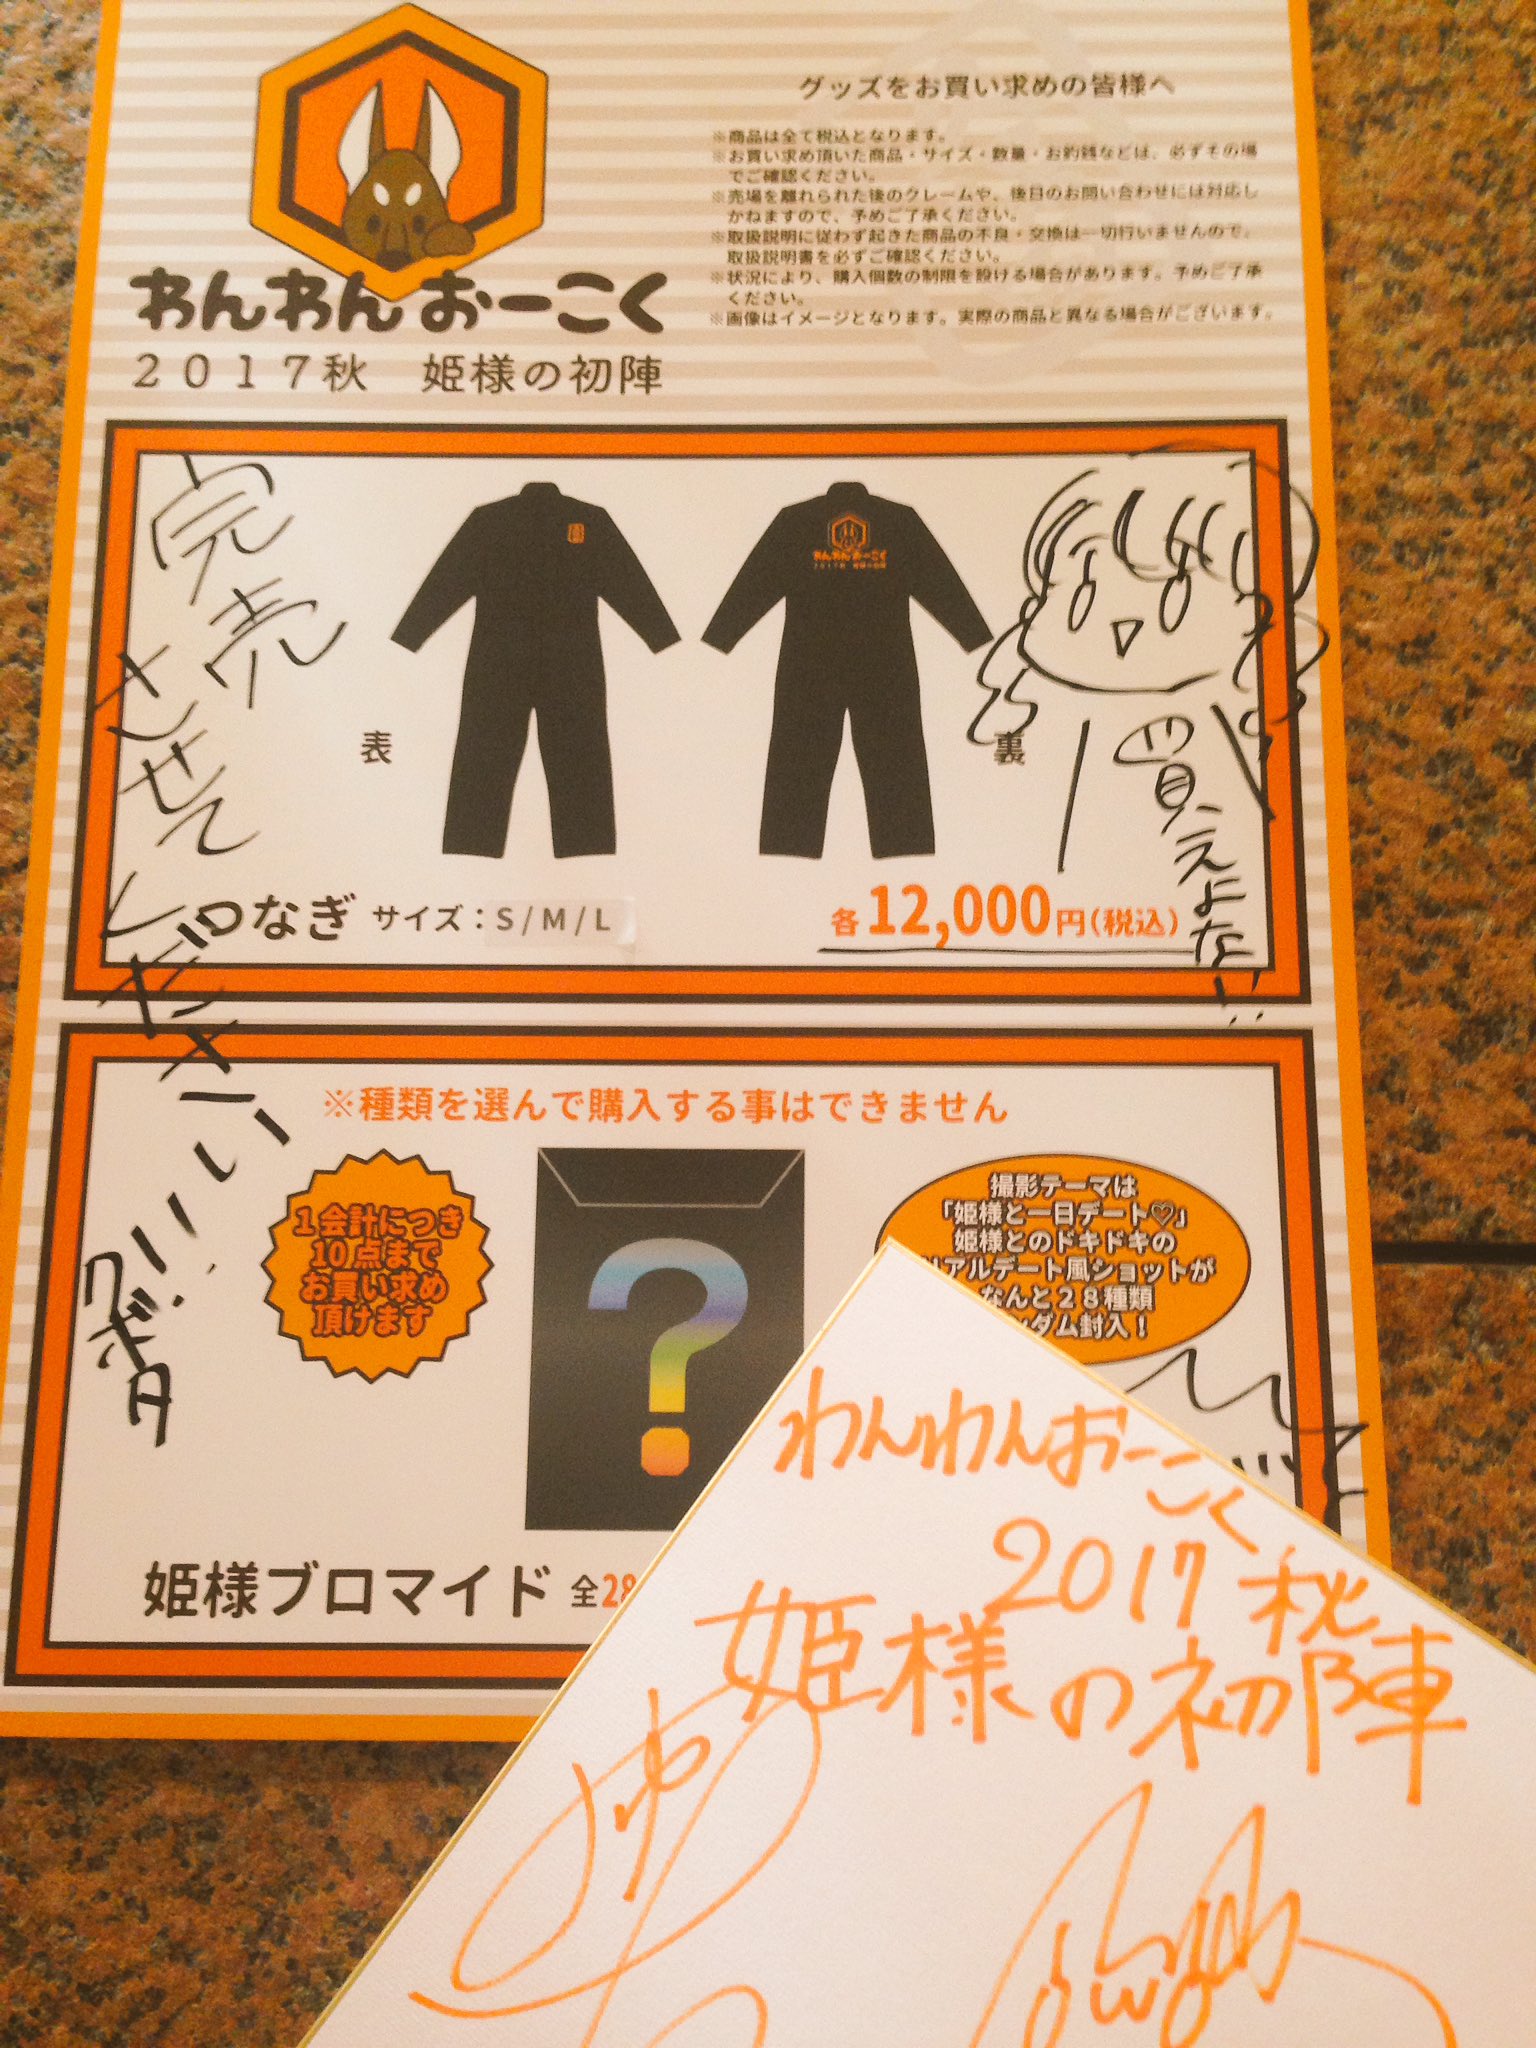 わんわんおーこく
2017秋 姫様の初陣
グッズをお買い求めの皆様へ
※商品は全て税込となります。
※お買い求め頂いた商品・サイズ・数量・お釣銭などは、必ずその場
でご確認ください。
※売場を離れられた後のクレームや、後日のお問い合わせには対応し
かねますので、予めご了承ください。
※取扱説明に従わず起きた商品の不良・交換は一切行いませんので、
取扱説明書を必ずご確認ください。
※状況により、購入個数の制限を設ける場合があります。予めご了承
ください。
※画像はイメージとなります。実際の商品と異なる場合がございます。
完売
させて
ください!!
クボタ
わんわんおーこく
2017秋 姫様の初陣
表
裏
買えよな!!
つなぎ サイズ:S/M/L
各12,000円(税込)
※種類を選んで購入する事はできません
1会計につき
10点まで
お買い求め
頂けます
?
撮影テーマは
「姫様と一日デート♡」
姫様とのドキドキの
リアルデート風ショットが
なんと28種類
ンダム封入!
姫様ブロマイド 全28
わんわんおーこく
2017秋
姫様の初陣